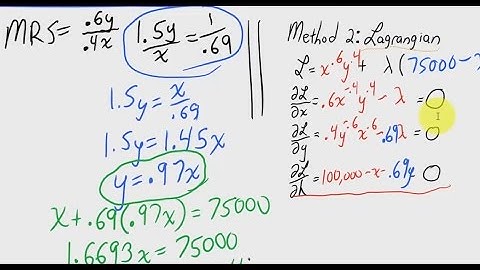 MRS = .6y/.4x
1.5y/x = 1/.69
1.5y = x/.69
1.5y = 1.45x
y = .97x
x + .69(.97x) = 75000
1.6693x = 75000
Method 2: Lagrangian
L = x^.6 y^.4 + λ(75000 -
∂L/∂x = .6x^-.4 y^.4 - λ = 0
∂L/∂y = .4y^-.6 x^.6 - .69λ = 0
∂L/∂λ = 100,000 - x - .69y 0